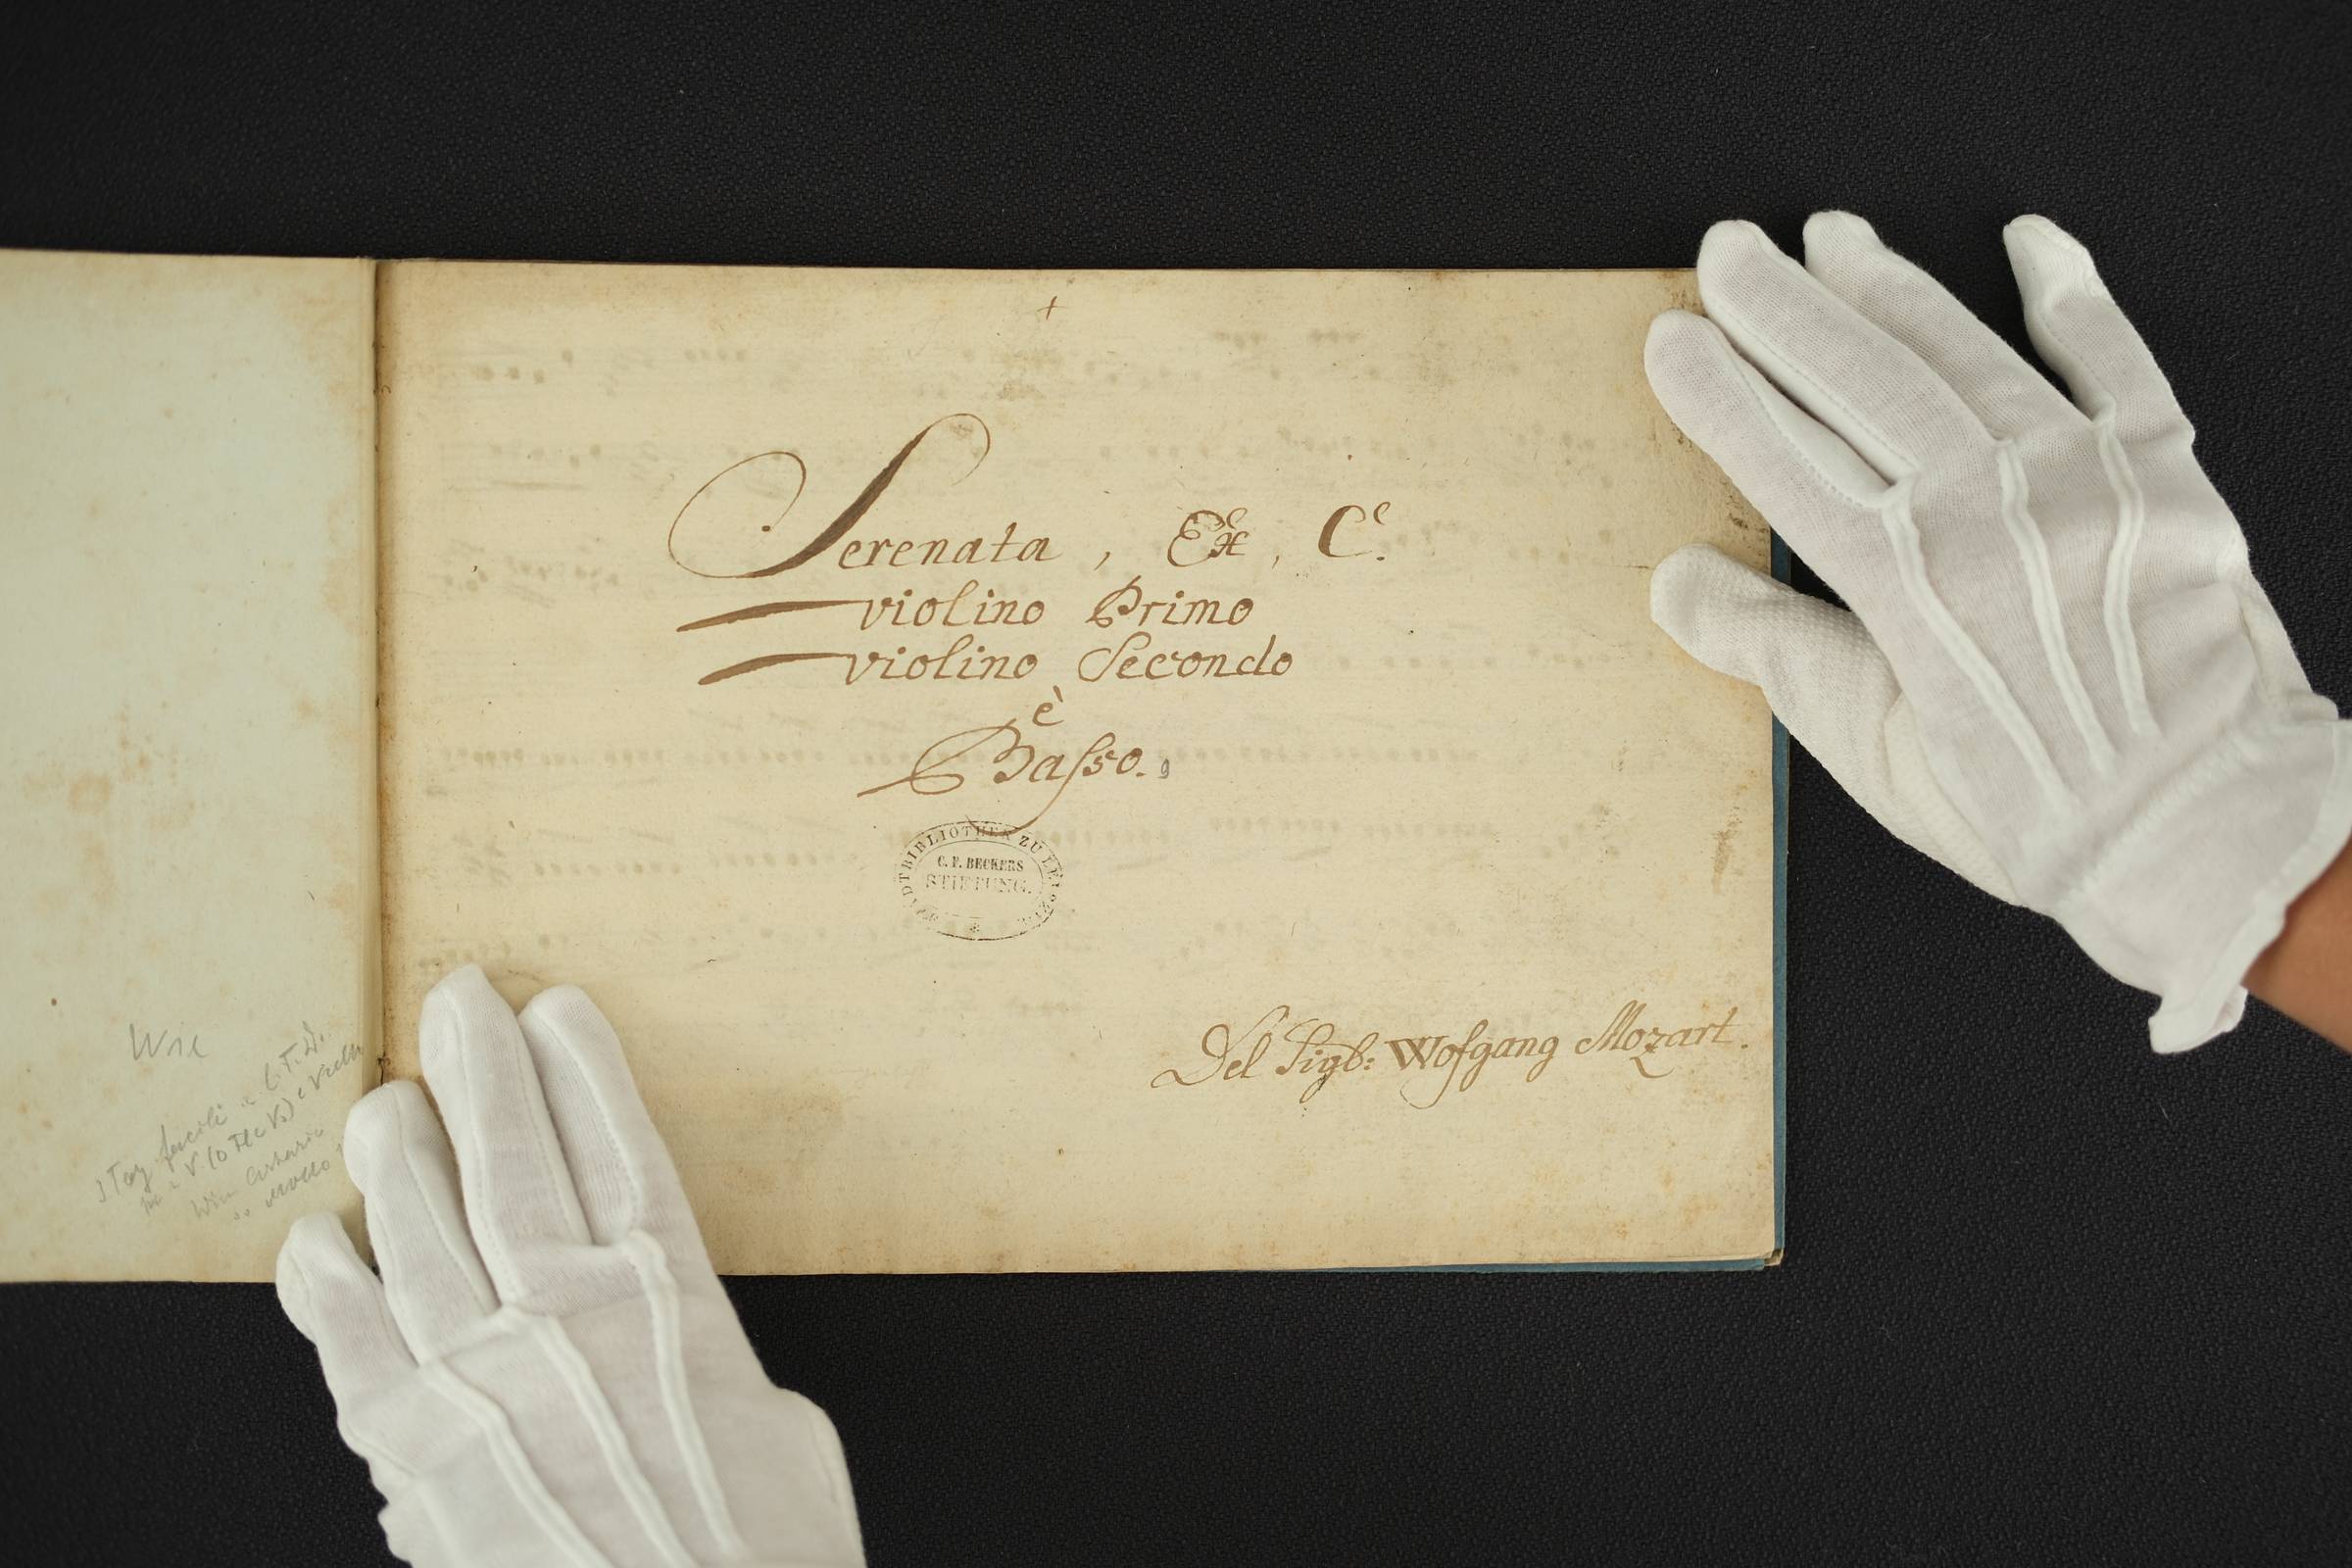 Wie
Serenata, Ex, C.
violino Primo
violino Secondo
è
Baſso. 9
STADTBIBLIOTHEK ZU LEIPZIG
C. F. BECKERS
STIFTUNG.
Del Sigb: Wofgang Mozart.